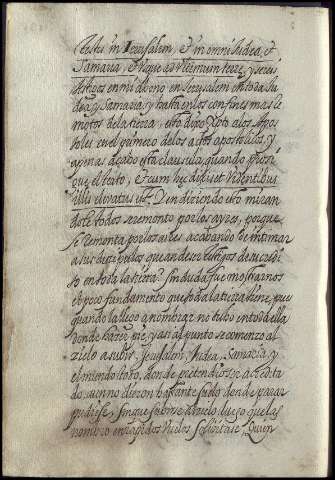 testes in Ierusalem, et in omni Iudea, et
Samaria, et usque ad ultimum terre, y sereis
testigos en mi abono en Ierusalem en toda Iu
dea, y Samaria, y hasta en los confines mas re
motos de la tierra, esto dijo Xpto a los Apos
toles en el primero de los actos apostolicos, y
apenas acabo esta clausula, quando prosi
gue el texto, et cum hec dixisset videntibus
illis elevatus est. Y en diziendo esto miran
dole todos se remonto por los ayres, porque
se remonta por los aires acabando de intimar
a sus discipulos que an de ser testigos de su credi
to en toda la tierra? sin duda fue mostrarnos
el poco fundamento que toda la tierra tiene, pues
quando la llego a nombrar no tubo en toda ella
donde hazer pie, y asi al punto se comenzo al
cielo a subir, Jerusalem, Iudea, Samaria y
el mundo todo, donde pretendio ser acredita
do, aun no dieron bastante suelo donde parar
pudiese, sin que subiese al cielo, luego que las
nombro en rapidos vuelos Quien